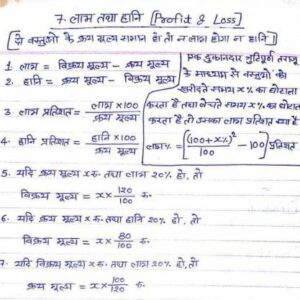 7. लाभ तथा हानि [Profit & Loss]
[दो वस्तुओं के क्रय मूल्य समान हो तो न लाभ होगा न हानि]
1. लाभ = विक्रय मूल्य - क्रय मूल्य
2. हानि = क्रय मूल्य - विक्रय मूल्य
3. लाभ प्रतिशत = लाभ × 100 / क्रय मूल्य
4. हानि प्रतिशत = हानि × 100 / क्रय मूल्य
एक दुकानदार त्रुटिपूर्ण तराजू
के माध्यम से वस्तुओं को
खरीदते समय x% का घोटाला
करता है तथा बेचते समय x% का घोटाला
करता है तो उसका लाभ प्रतिशत क्या है
लाभ% = [(100+x%)² / 100 - 100] प्रतिशत
5. यदि क्रय मूल्य x रु. तथा लाभ 20% हो, तो
विक्रय मूल्य = x × 120/100 रु.
6. यदि क्रय मूल्य x रु. तथा हानि 20% हो, तो
विक्रय मूल्य = x × 80/100 रु.
7. यदि विक्रय मूल्य x रु. तथा लाभ 20% हो, तो
क्रय मूल्य = x × 100/120 रु.